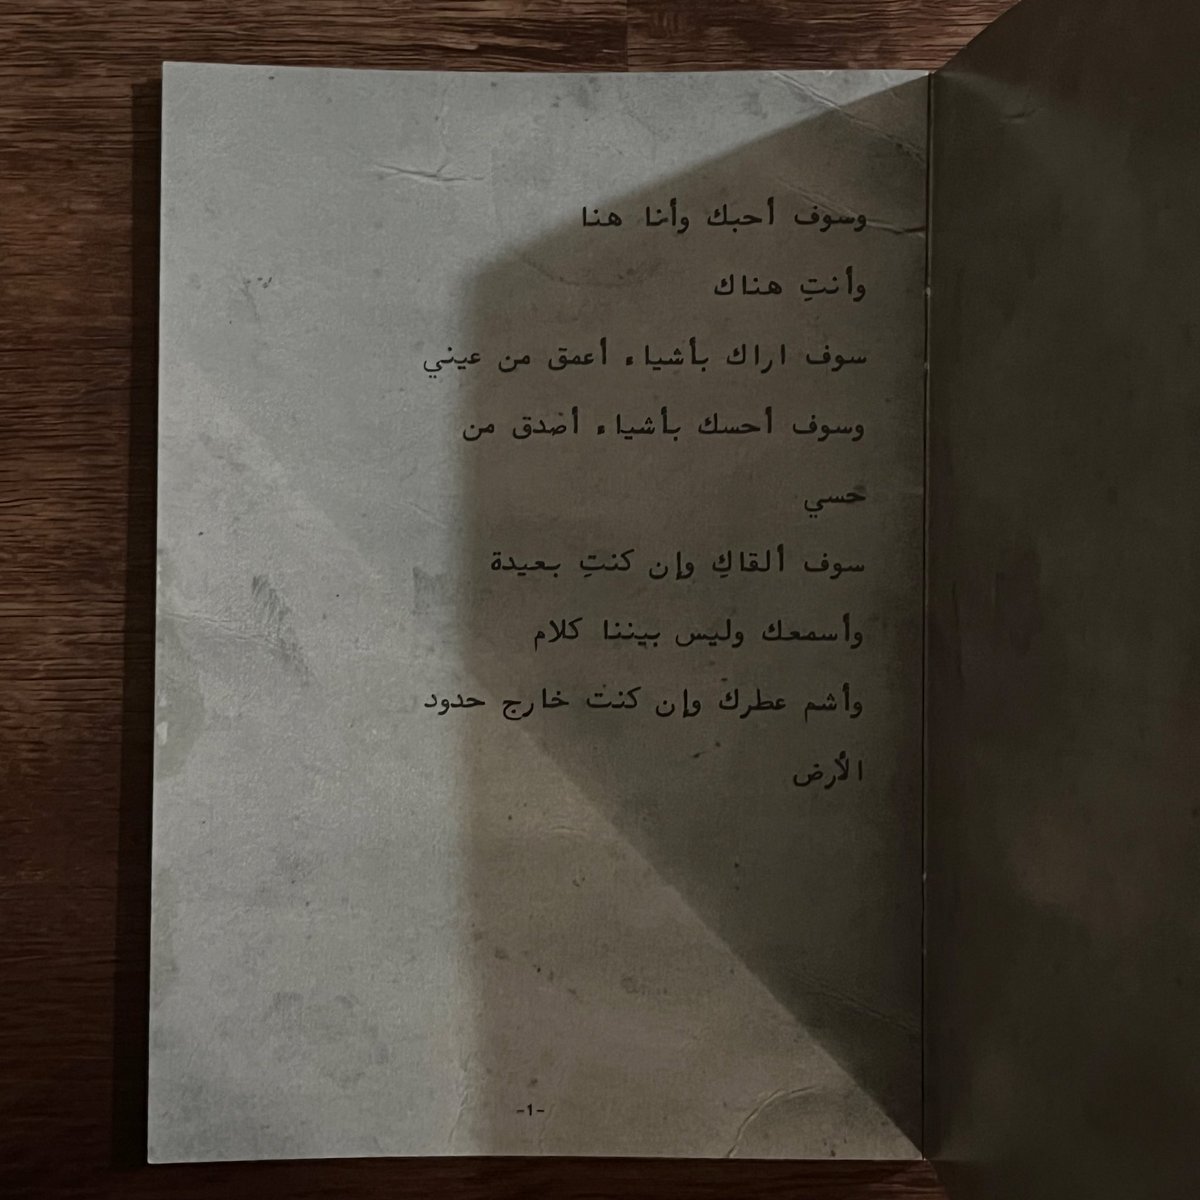 وسوف أحبك وأنا هنا
وأنتِ هناك
سوف اراك بأشياء أعمق من عيني
وسوف أحسك بأشياء أصدق من
حسي
سوف ألقاكِ وإن كنتِ بعيدة
وأسمعك وليس بيننا كلام
وأشم عطرك وإن كنت خارج حدود
الأرض
-1-